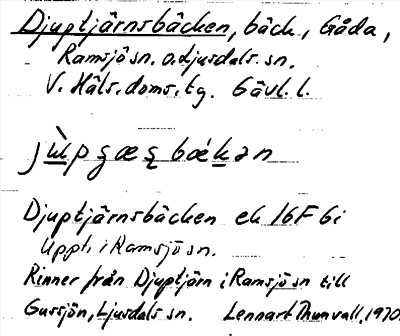 Djuptjärnsbäcken, bäck, Gåda,
Ramsjö sn. o. Ljusdals. sn.
V. Häls. doms. tg. Gävl. l.
Djuptjärnsbäcken ek 16F 6i
Uppt. i Ramsjö sn.
Rinner från Djuptjärn i Ramsjö sn till
Gussjön, Ljusdals sn. Lennart Thunvall, 1970.